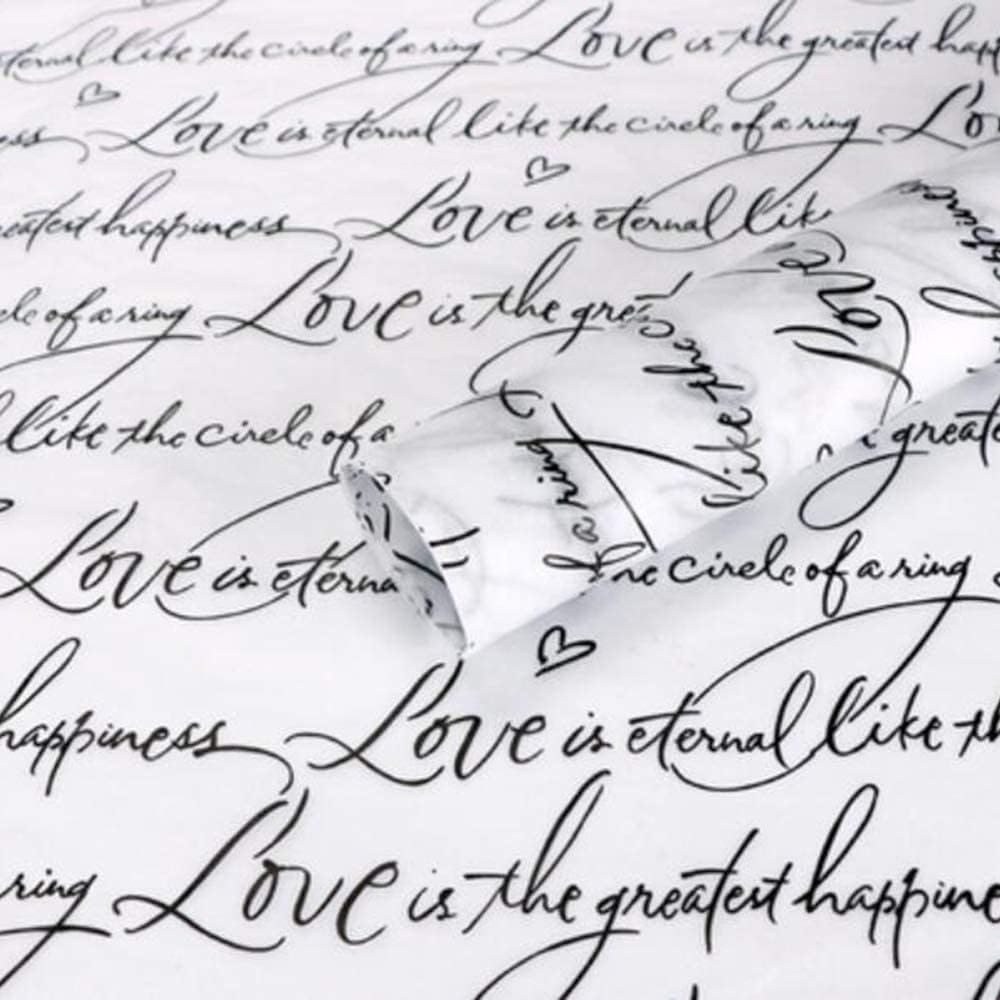 eternal like the circle of a ring Love is the greatest
Love is eternal like the circle of a ring
happiness Love is eternal
of a ring Love is the
like the circle of a greatest
Love is circle of a ring
happiness Love is eternal like
ring Love is the greatest
like the
ring